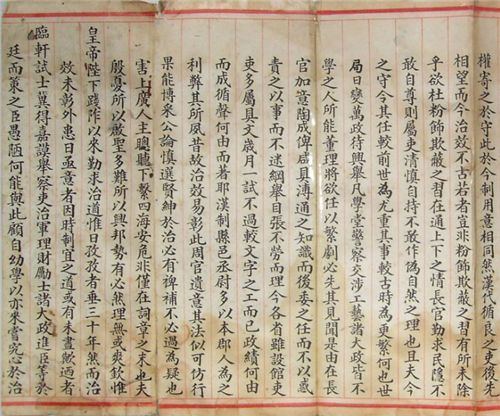 權寄之於守此於今制用意相同然漢代循良之吏後先
相望而今治效不古若者豈非粉飾欺蔽之習有所未除
乎欲杜粉飾欺蔽之習在通上下之情長官勤求民隱不
敢自尊則屬吏清慎自持不敢作偽自然之理也且夫今
之守令其任較前世為尤重其事較古時為更繁何也世
局日變萬政待興舉凡學堂警察交涉工藝諸大政皆不
學之人所能董理將欲任以繁劇必先其見聞是由在長
官加意陶成俾咸具溥通之知識而後委之任而不以惑
責之以事而不迷綱舉目張不勞而理今各省雖設館課
吏多屬具文歲月一試不過較文字之工而已政績何由
而成循聲何由而著耶漢制縣邑丞尉多以本郡人為之
利弊其所夙昔故治效易彰此周官遺意其法似可仿行
果能博采公論慎選賢紳於治必有裨補不必過為疑也
害上廣人主聰聽下繫四海安危非僅在詞章之末也夫
殷憂所以啟聖多難所以興邦勢有必然理無或爽欽惟
皇帝陛下踐阼以來勤求治道惟日孜孜者垂三十年然而治
效未彰外患日亟意者因時制宜之道或有未盡歟迺者
臨軒試士冀得嘉謨舉察吏治軍理財勵士諸大政進臣等於
廷而策之臣愚陋何能與此顧自幼學以亦來嘗究心於治